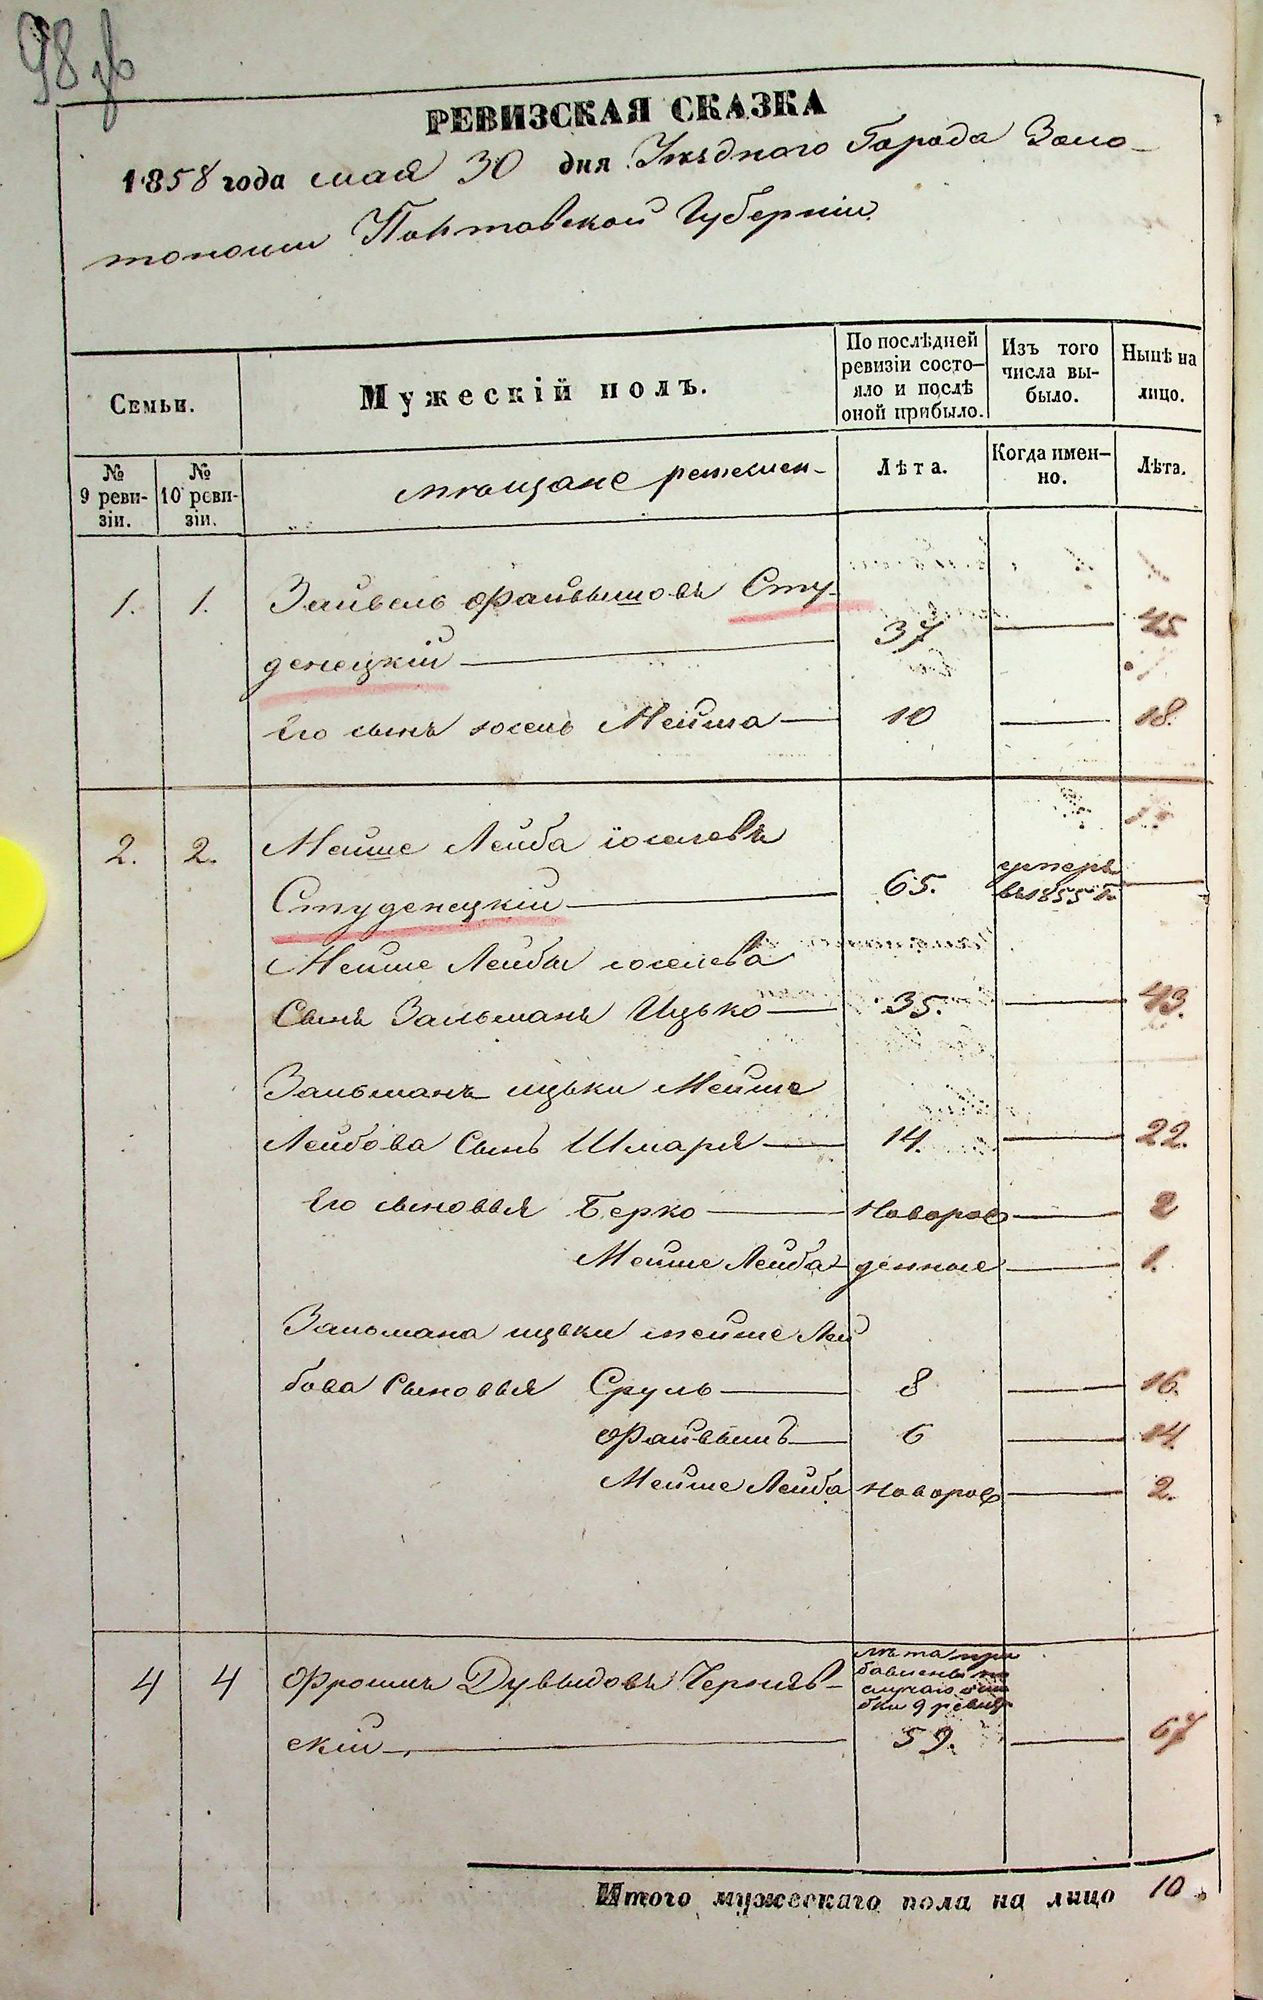 98
РЕВИЗСКАЯ СКАЗКА
1858 года мая 30 дня Уѣзднаго Города Золо-
тоноши Полтавской Губерніи
Семьи.
Мужескій полъ.
По послѣдней ревизіи состо-яло и послѣ оной прибыло.
Изъ того числа вы-было.
Нынѣ на лицо.
№ 9 реви-зіи.
№ 10 реви-зіи.
мѣщане
Лѣта.
Когда имен-но.
Лѣта.
1. 1. Зайвель Файвышовъ Сту-
денецкій 37 45
Его сынъ Іосель Мейша 10 18.
2. 2. Мейше Лейба іоселевъ
Студенецкій 65. умеръ въ 1855 г.
Мейше Лейбы іоселева
Сынъ Зальманъ Ицько 35. 43.
Зальманъ ицьки Мейше
Лейбова Сынъ Шмаря 14. 22.
Его сыновья Берко Новорож 2
Мейше Лейба денные 1.
Зальмана ицьки мейше Лей
бова Сыновья Сруль 8 16.
Файвышъ 6 14.
Мейше Лейба Новорож 2.
лѣта при
бавлены по
случаю оши
бки 9 ревиз
4 4 Фроимъ Дувыдовъ Чернявс-
скій 59. 67
Итого мужескаго пола на лицо 10